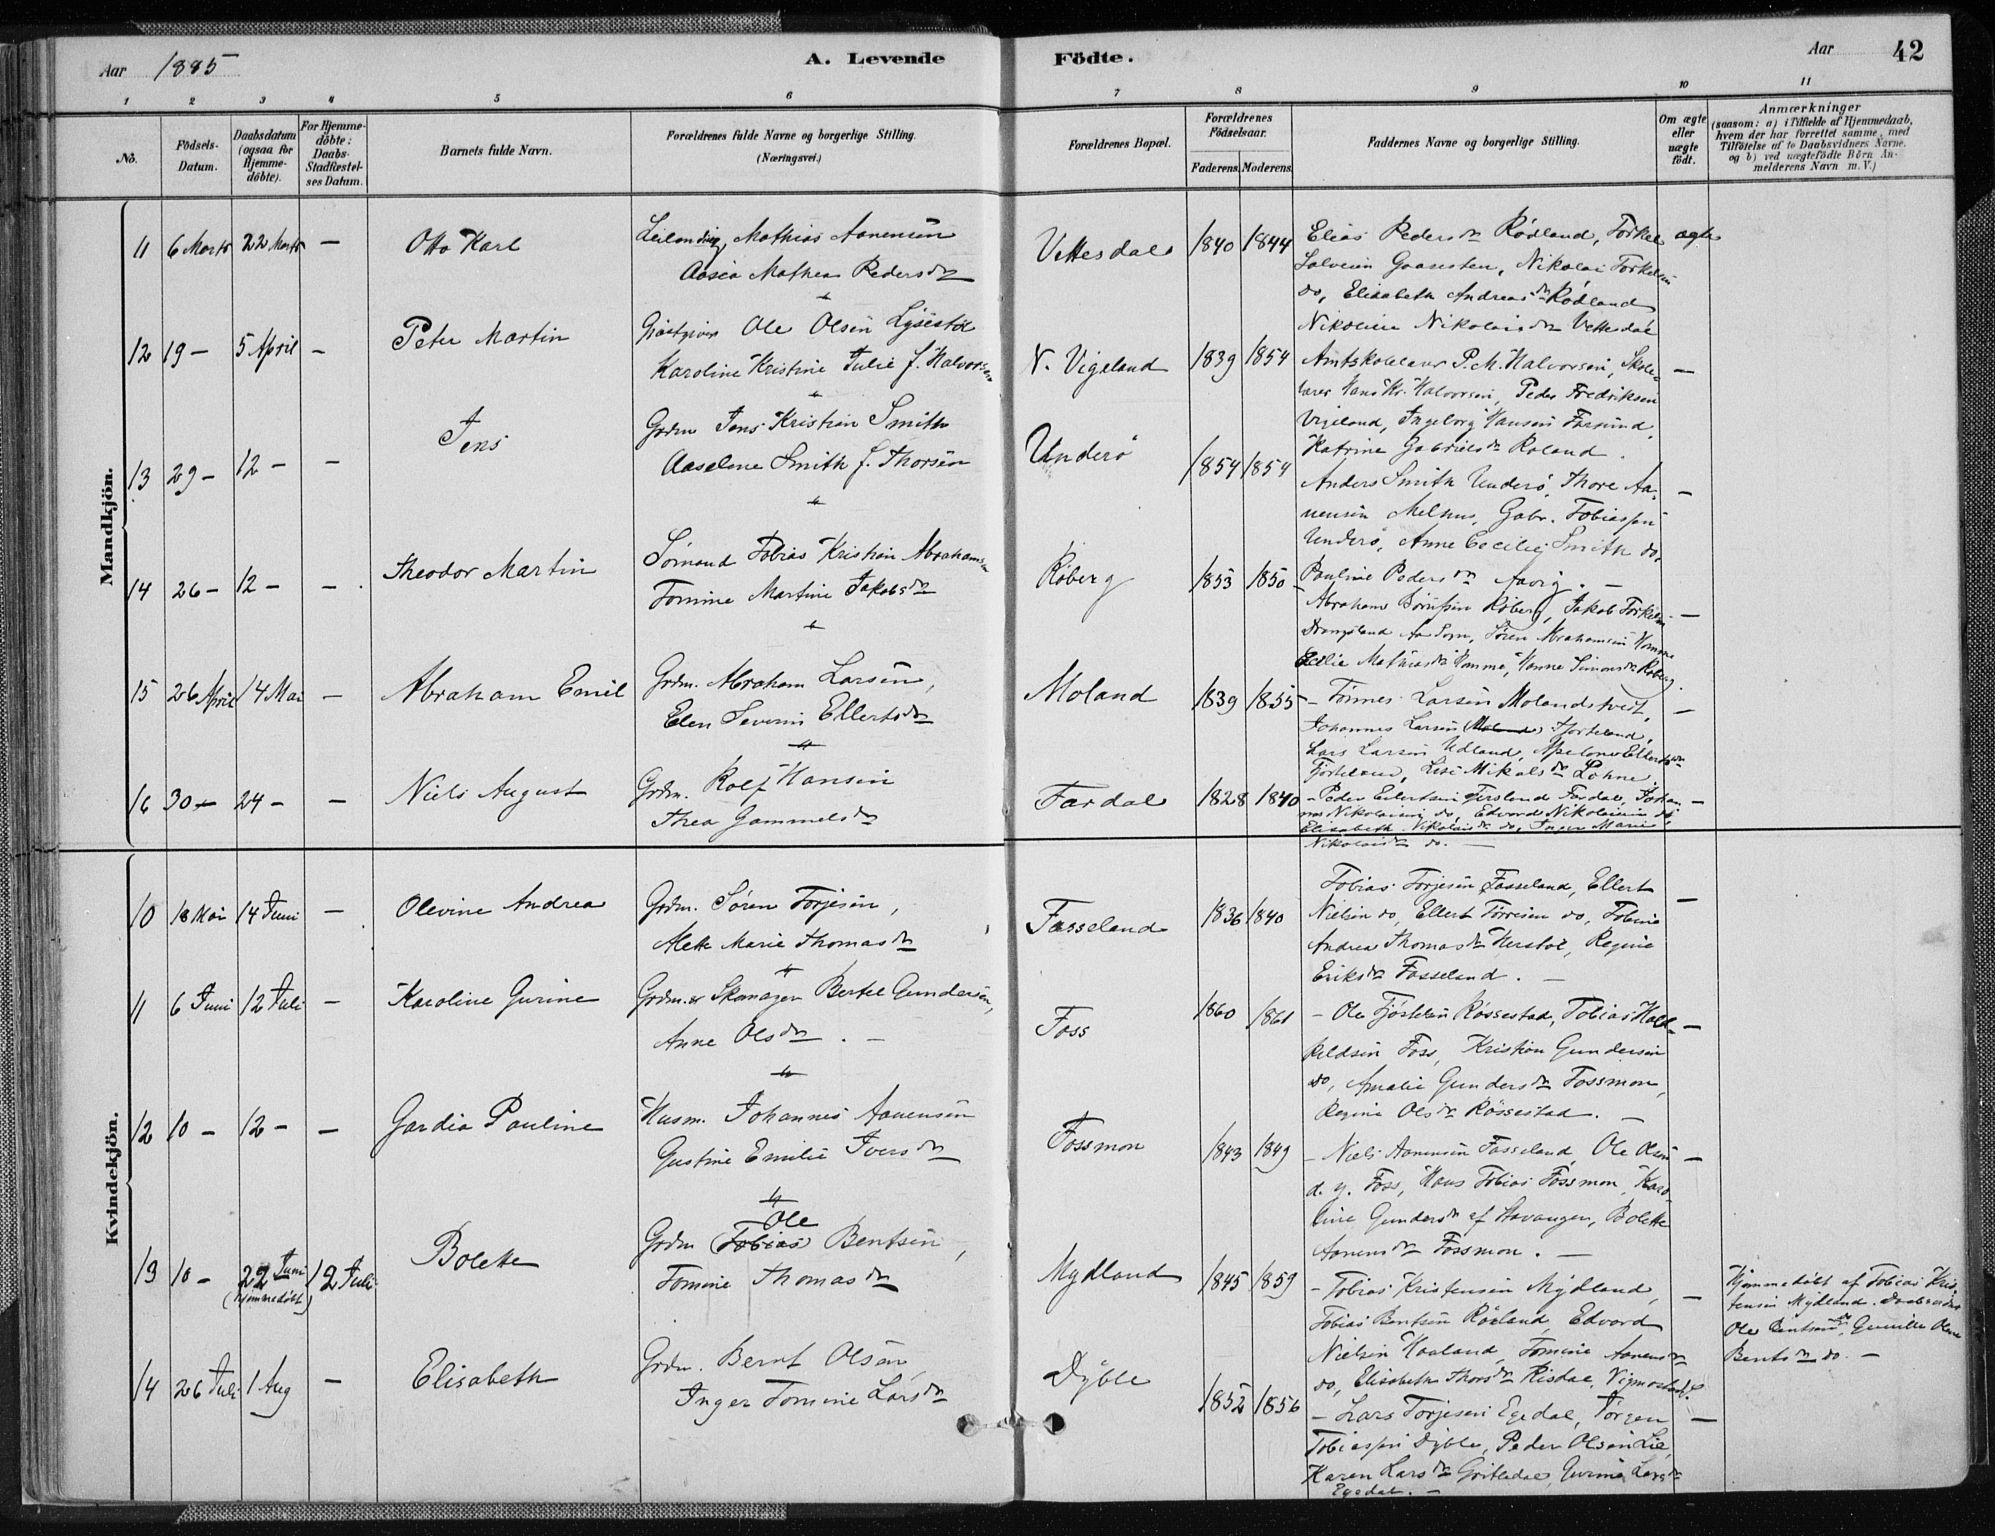 Aar 1885
A. Levende
Födte.
Aar
42
1 2 3 4 5 6 7 8 9 10 11
No.
Födsels-Datum.
Daabsdatum (ogsaa for Hjemme-döbte).
For Hjemme-döbte: Daabs-Stadfæstel-ses Datum.
Barnets fulde Navn.
Forældrenes fulde Navne og borgerlige Stilling.
(Næringsvei.)
Forældrenes Bopæl.
Forældrenes Födselsaar.
Faderens. Moderens.
Faddernes Navne og borgerlige Stilling.
Om ægte eller uægte födt.
Anmærkninger
(saasom: a) i Tilfælde af Hjemmedaab, hvem der har forrettet samme, med Tilföielse af to Daabsvidners Navne. og b) ved uægtefödte Börn An-melderens Navn m. V.)
Mandkjön.
11 6 Marts 22 Marts — Otto Karl
Mathias Aanensen
Aasea Mathea Pedersdr
Vettesdal 1840 1844
Elias Pedersen Rødland, Torkel ægte
Salvesen Gaaseston, Nikolai Torkelsen
do, Elisabeth Andreasdr Rødland
Nikoline Nikolaisdr Vettedal
12 19 — 5 April — Peter Martin
Gjæstgiver Ole Olsen Lysestöl
Karoline Kristine Julie f. Halvorsen
N. Vigeland 1839 1854
P. M. Halvorsen, Skole-
lærer Hans Kr. Halvorsen, Peder Fredriksen
Vigeland, Ingeborg Hansen Farsund,
Katrine Gabrielsdr Roland.
13 29 — 12 — — Jens
Grdm Jens Kristian Smith
Aaselene Smith f. Thorsen
Underø 1854 1854
Anders Smith Underø, Thore Aa- —
nensen Melhus, Gabr. Tobiassen
Underø, Anne Cecilie Smith do,
Pauline Pedersdr Aavig. —
14 26 — 12 — — Theodor Martin
Sømand Tobias Kristian Abrahamsen
Tomine Martine Jakobsdr
Røberg 1853 1850
Abraham Røberg, Jakob Torkelsen —
Drangsland Aa Sogn, Søren Abrahamsen Homme
Cecilie Mathiasdr Homme, Hanne Simonsdr Røberg.
15 26 April 14 Mai — Abraham Emil
Grdm. Abraham Larsen,
Elen Severine Ellertsdr
Moland 1839 1855
— Tønnes Larsen Molandstvedt, —
Johannes Larsen Fjorteland,
Lars Larsen Udland, Apelone Ellertsdr
Fjorteland, Lise Mikalsdr Løhne
16 30 — 24 — — Niels August
Grdm. Rolf Hansen
Thea Gammelsdr
Fardal 1828 1840
— Peder Eilertsen Fardal, Johan- —
nes Nikolaisen do, Edvard Nikolaisen do,
Elisabeth Nikolaisdr do, Inger Marie
Nikolaisdr do. —
Kvindekjön.
10 18 Mai 14 Juni — Olevine Andrea
Grdm. Søren Torjesen,
Alette Marie Thomasdr
Fasseland 1836 1840
Tobias Torjesen Fasseland, Ellert —
Nielsen do, Ellert Tørresen do, Tobine
Andrea Thomasdr Herstøl, Regine
Eriksdr Fasseland. —
11 6 Juni 12 Juli — Karoline Gurine
Grdm. & Skomager Bertel Gundersen,
Anne Olsdr. —
Foss 1860 1861
— Ole Røssestad, Tobias Hald- —
keldsen Foss, Kristian Gundersen
do, Amalie Gundersdr Fossmon,
Regine Olsdr Røssestad. —
12 10 — 12 — — Gardia Pauline
Husm. Johannes Aanensen
Gustine Emilie Iversdr
Fossmon 1843 1849
— Niels Aanensen Fasseland, Ole Olsen —
d. y. Foss, Hans Tobias Fossmon, Karo-
line Gundersdr af Stavanger, Bolette
Aanensdr Fossmon. —
13 10 — 22 Juni (hjemmedöbt) 12 Juli Bolette
Ole
Grdm (Tobias) Bentsen,
Tomine Thomasdr
Mydland 1845 1859
— Tobias Kristensen Mydland, —
Tobias Bentsen Røiland, Edvard
Nielsen Haaland, Tomine Aanensdr
do, Elisabeth Thorsdr Risdal, Vigmostad.
Hjemmedöbt af Tobias Kris-
tensen Mydland. Daabsvidner
Ole Bentsen do, Gunille Olene
Bentsdr do. —
14 26 Juli 1 Aug — Elisabeth
Grdm. Bernt Olsen
Inger Tomine Larsdr
Dyble 1852 1856
— Lars Torjesen Egedal, Jørgen —
Tobiassen Dyble, Peder Olsen Lie,
Karen Larsdr Gritledal, Gurine Larsdr
Egedal. —